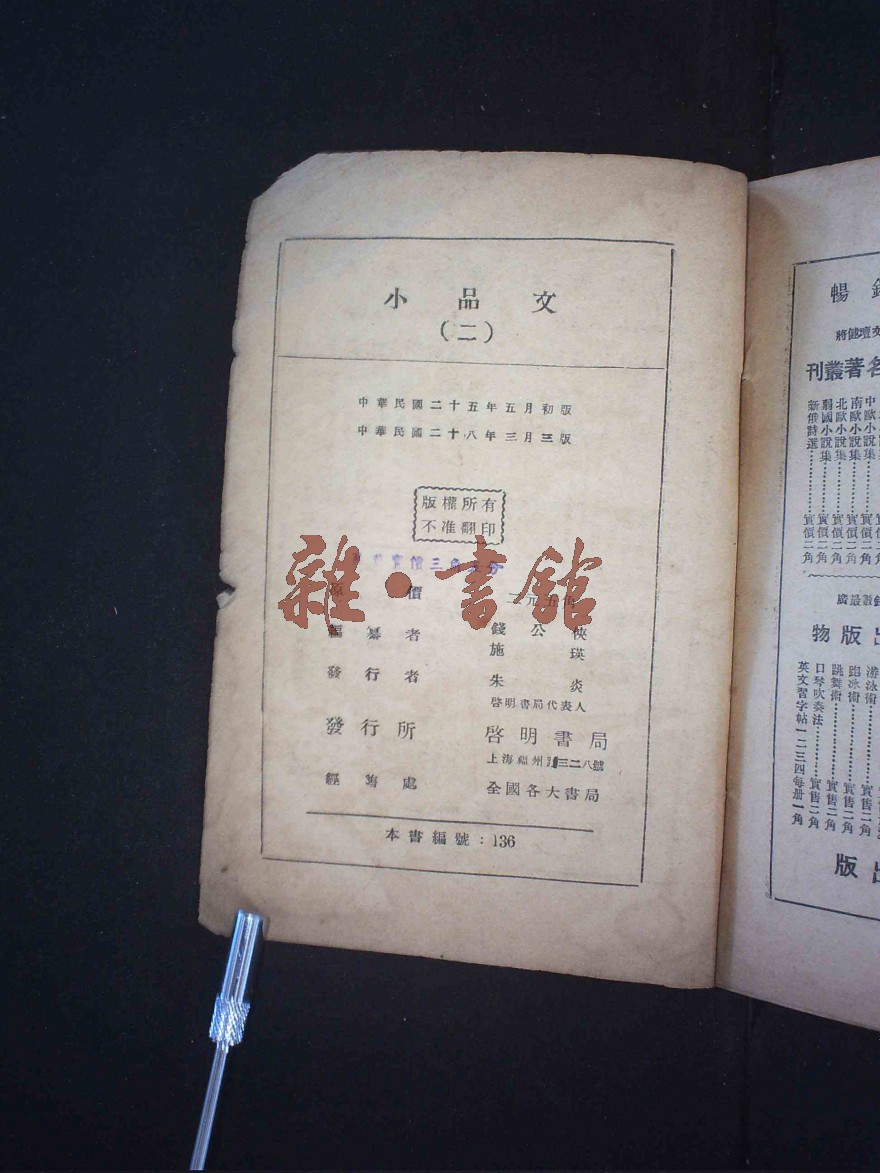 小品文
（二）
中華民國二十五年五月初版
中華民國二十八年三月三版
版權所有
不准翻印
實價三角
雜·書館
原價 一元五角
編纂者 錢公俠
施瑛
發行者 朱炎
啓明書局代表人
發行所 啓明書局
上海福州路三二八號
經售處 全國各大書局
本書編號：136
暢
將健壇
刊叢著名
中
南歐小說集……實價二角
北歐小說集……實價二角
弱國小說集……實價二角
新俄詩選……實價二角
廣最
物版出
游泳術
溜冰術……實售二角
跳舞術……實售二角
口琴吹奏法……實售二角
英文習字帖一二三四每册一角
版出